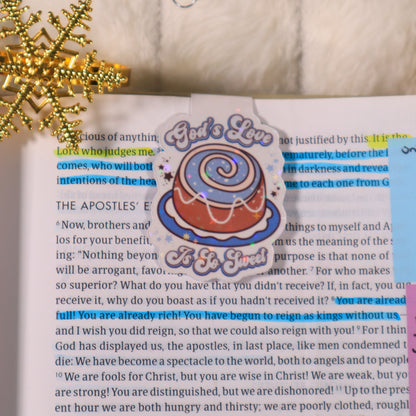 God's Love
Is So Sweet
scious of anything not justified by this. It is the
Lord who judges me. ematurely, before the L
comes, who will both in darkness and revea
intentions of the hea me to each one from G
THE APOSTLES' E
6 Now, brothers and things to myself and A
los for your benefit, us the meaning of the s
ing: "Nothing beyon purpose is that none of
will be arrogant, favor another. 7 For who makes
so superior? What do you have that you didn't receive? If, in fact, you di
receive it, why do you boast as if you hadn't received it? 8 You are alread
full! You are already rich! You have begun to reign as kings without us,
and I wish you did reign, so that we could also reign with you! 9 For I thin
God has displayed us, the apostles, in last place, like men condemned t
die: We have become a spectacle to the world, both to angels and to people
10 We are fools for Christ, but you are wise in Christ! We are weak, but yo
are strong! You are distinguished, but we are dishonored! 11 Up to the pres
ent hour we are both hungry and thirsty; we are poorly clothed, rough